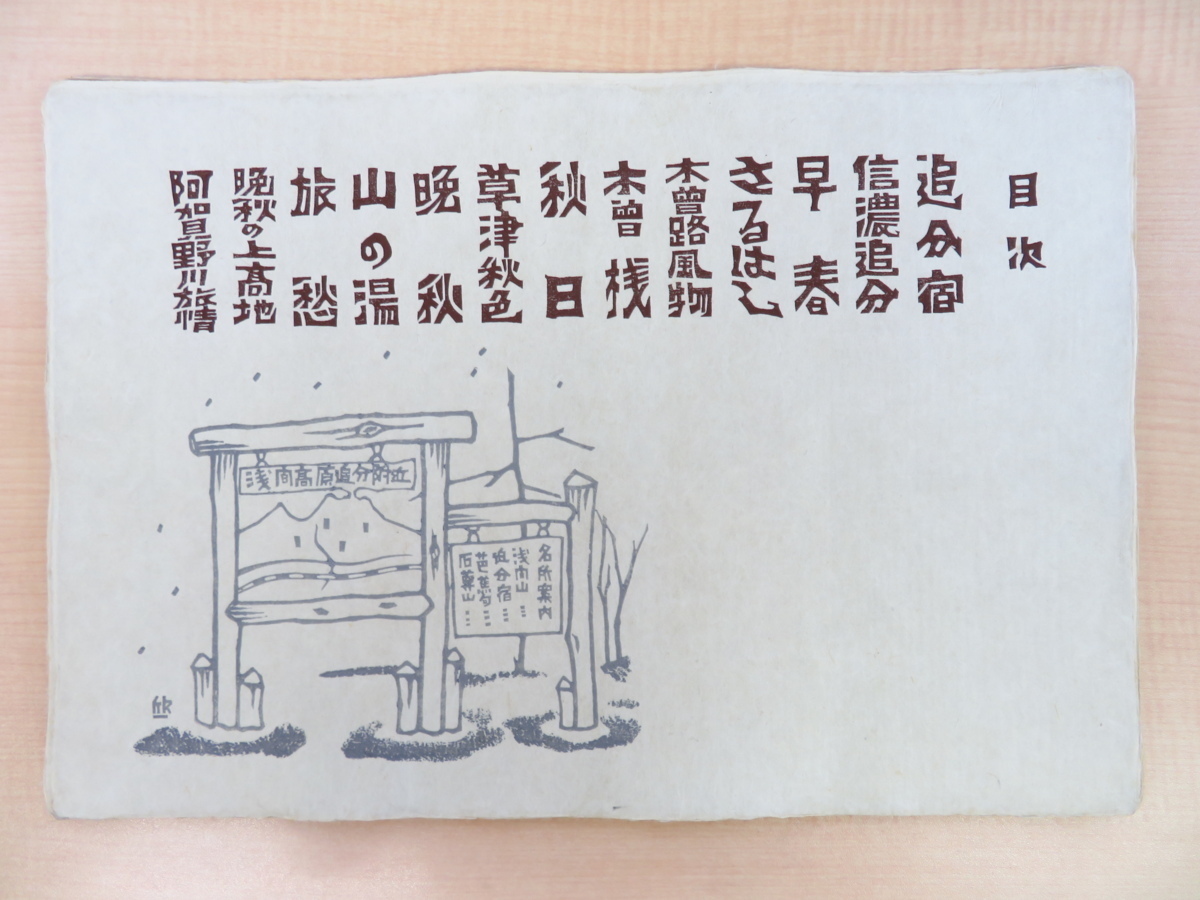 目次
追分宿
信濃追分
早春
さるはし
木曽路風物
木曽桟
秋日
草津秋色
晩秋
山の湯
旅愁
晩秋の上高地
阿加賀野川旅情
浅間高原追分附近
名所案内
浅間山…
追分宿…
芭蕉句…
石尊山…